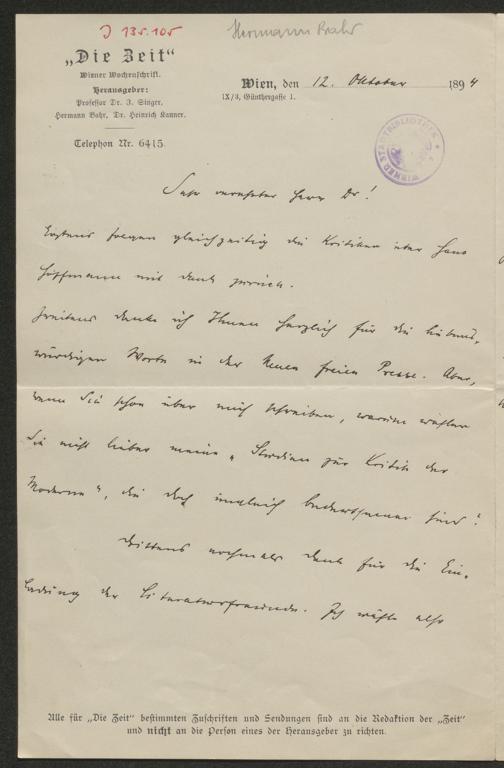 J 135.105
Hermann Bahr
„Die Zeit“
Wiener Wochenschrift.
Herausgeber:
Professor Dr. J. Singer,
Hermann Bahr, Dr. Heinrich Kanner.
Telephon Nr. 6415.
Wien, den 12. Oktober 1894
IX/3, Günthergasse 1.
WIENER STADTBIBLIOTHEK
Sehr verehrter Herr Dr!
Erstens folgen gleichzeitig die Kritiken über Hans
Hoffmann mit Dank zurück.
Zweitens danke ich Ihnen herzlich für die liebens,
würdigen Worte in der Neuen freien Presse. Aber,
wenn Sie schon über mich schreiben, warum wählen
Sie nicht lieber meine „Studien zur Kritik der
Moderne“, die doch ungleich bedeutsamer sind?
Drittens nochmals Dank für die Ein-
ladung der Literaturfreunde. Ich wähle also
Alle für „Die Zeit“ bestimmten Zuschriften und Sendungen sind an die Redaktion der „Zeit“
und nicht an die Person eines der Herausgeber zu richten.